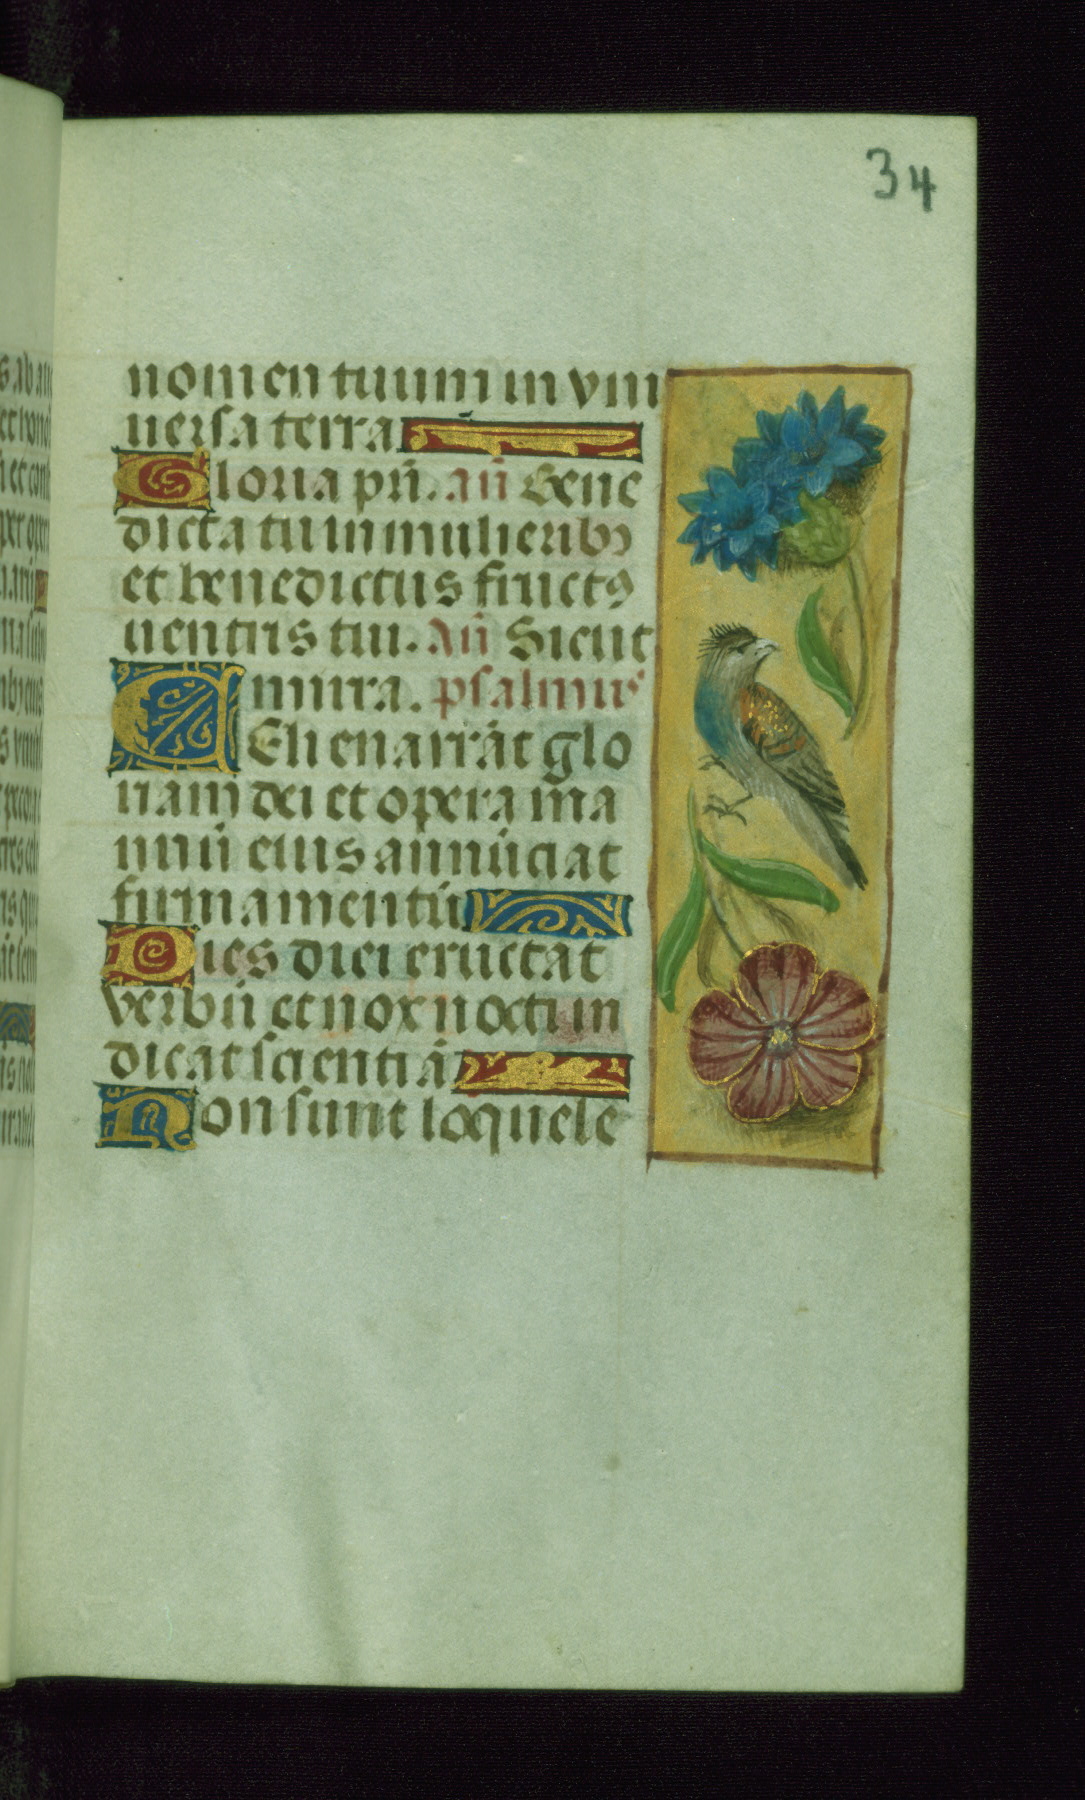 34
nomen tuum in vni
uersa terra
Gloria pri. an Bene
dicta tu in mulierib9
et benedictus fruct9
uentris tui. An Sicut
mirra. psalmus
CEli enarrāt glo
riam dei et opera ma
nuū eius annūciat
firmamentū
Dies diei eructat
verbū et nox nocti in
dicat scientiā
Non sunt loquele